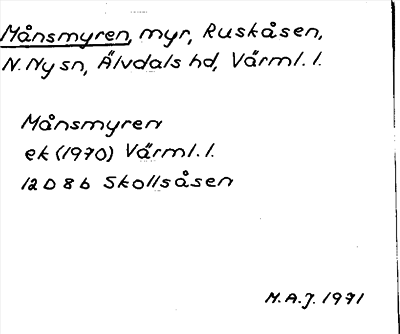 Månsmyren, myr, Ruskåsen,
N. Ny sn, Älvdals hd, Värml. l.
Månsmyren
ek (1970) Värml. l.
12 D 8 b Skollsåsen
M.A.J. 1971